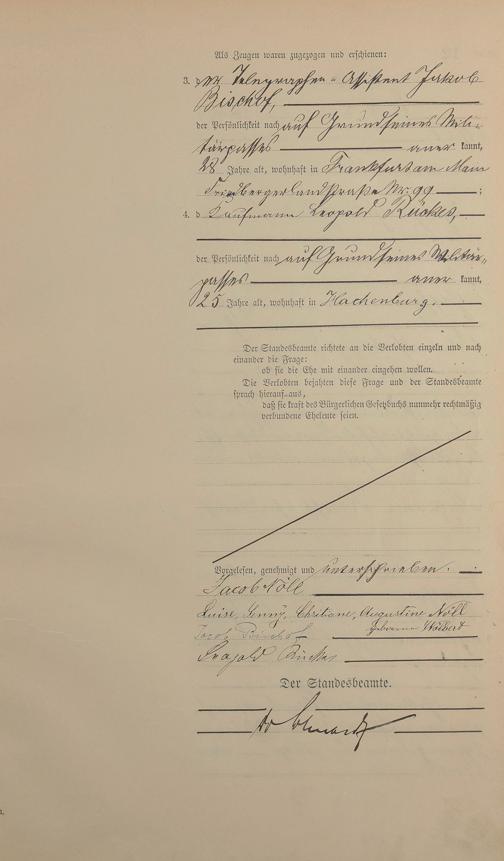 Als Zeugen waren zugezogen und erschienen:
3. der Telegraphen-Assistent Jakob
Bischof,
der Persönlichkeit nach auf Grund seines Mili-
tärpasses anerkannt,
28 Jahre alt, wohnhaft in Frankfurt am Main
Friedbergerlandstraße Nr. 99;
4. d Kaufmann Leopold Rückes,
der Persönlichkeit nach auf Grund seines Militär-
passes anerkannt,
25 Jahre alt, wohnhaft in Hachenburg.
Der Standesbeamte richtete an die Verlobten einzeln und nach
einander die Frage:
ob sie die Ehe mit einander eingehen wollen.
Die Verlobten bejahten diese Frage und der Standesbeamte
sprach hierauf aus,
daß sie kraft des Bürgerlichen Gesetzbuchs nunmehr rechtmäßig
verbundene Eheleute seien.
Vorgelesen, genehmigt und unterschrieben.
Jacob Nöll
Luise, Jenny, Christiane, Augustine Nöll
geborene
Jacob Bischof
Leopold Rückes
Der Standesbeamte.